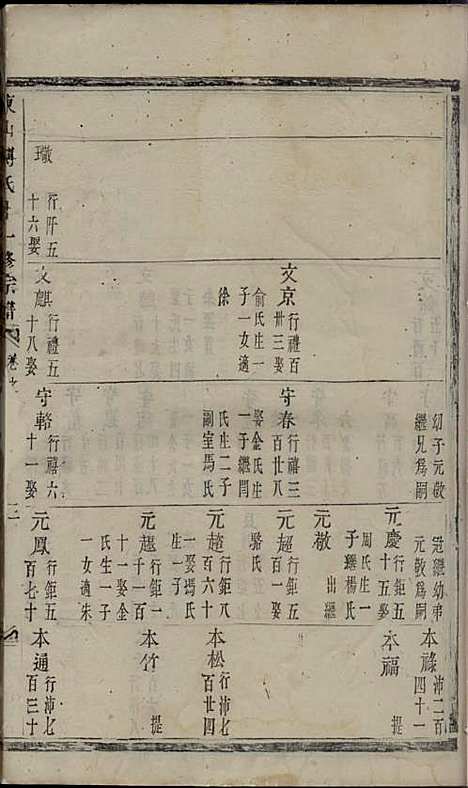 東山傅氏十一修宗譜 卷
璈 行阡五
十六娶
文京 行禮百
卅三娶
俞氏生一
子一女適
徐
文麒 行禮五
十八娶
幼子元敬
繼兄爲嗣
守春 行禧三
百廿八
娶金氏生
一子繼閏
氏生二子
副室馬氏
守輅 行禧六
十一娶
元敬爲嗣
元慶 行鉅五
十五娶
周氏生一
子瓘楊氏
元敬
出繼
元超 行鉅五
百一娶
駱氏
元趨 行鉅八
百六十
一娶馮氏
生一子
元趣 行鉅一
千一百
十一娶金
氏生一子
一女適朱
元鳳 行鉅五
百七十
本祿 沛二百
四十一
本福 提
本松 行沛七
百廿四
本竹 提
本通 行沛七
百三十